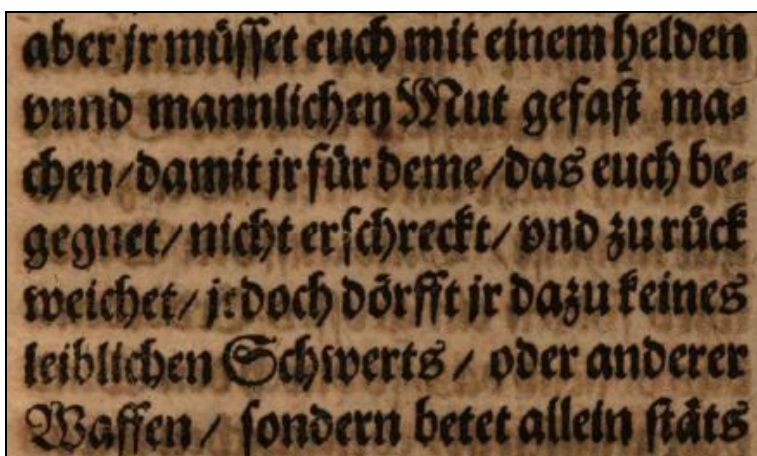 aber jr muͤſſet euch mit einem helden
vnnd mannlichen Mut gefaſt ma⸗
chen/damit jr fuͤr deme/das euch be⸗
gegnet/nicht erſchreckt/vnd zu ruͤck
weichet/jedoch doͤrfft jr dazu keines
leiblichen Schwerts / oder anderer
Waffen / ſondern betet allein ſtaͤts